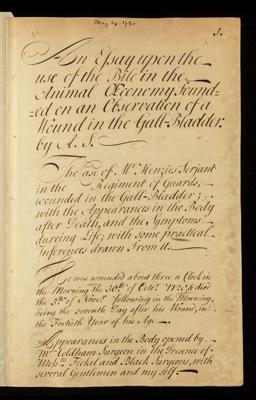 May 28. 1730
1.
An Essay upon the
use of the Bile in the
Animal Œconomy, found-
-ed on an Observation of a
Wound in the Gall-Bladder:
by A. S.
The Case of Mr. Menzies Serjant
in the Regiment of Guards,
wounded in the Gall-Bladder;
with the Appearances in the Body
after Death, and the Symptoms
dureing Life; with some practical
Inferences drawn from it.
He was wounded about three a Clock in
the Morning the 30th of Octr. 1728 & died
the 5th. of Novr. following in the Morning,
being the Seventh Day after his Wound, in
the Fortieth Year of his Age.
Appearances in the Body opened by
Mr. Coldham Surgeon in the Presence of
Messrs. Fickel and Black Surgeons, with
several Gentlemen and my self.